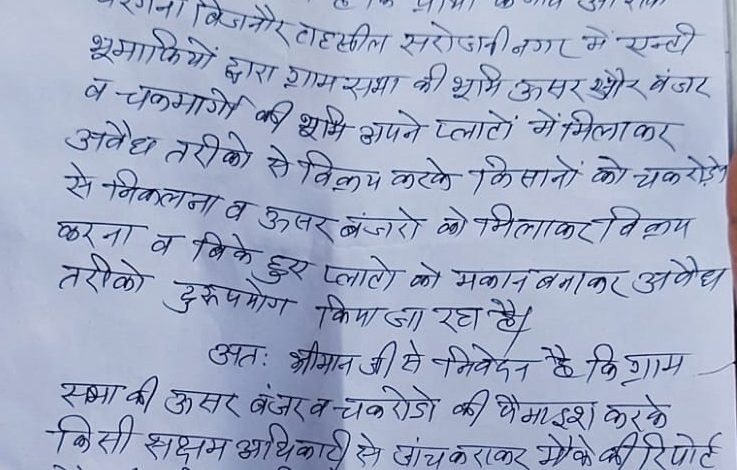 परगना बिजनौर तहसील सरोजनी नगर में एन्टी
भूमाफियों द्वारा ग्रामसभा की भूमि ऊसर और बंजर
व चकमार्गो की भूमि अपने प्लाटों में मिलाकर
अवैध तरीको से विक्रय करके किसानों को चकरोडो
से निकलना व ऊसर बंजरो को मिलाकर विक्रय
करना व बिके हुए प्लाटो को मकान बनाकर अवैध
तरीको दुरूपयोग किया जा रहा है।
अतः श्रीमान जी से निवेदन है कि ग्राम
सभा की ऊसर बंजर व चकरोडो की पैमाइश करके
किसी सक्षम अधिकारी से जांच कराकर मौके की रिपोर्ट